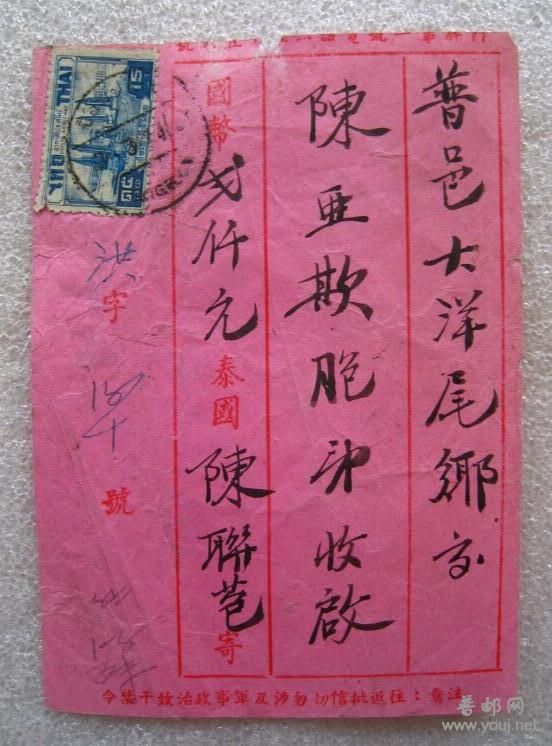 普邑大洋尾鄉交
陳亜欺胞弟收啟
國幣弍仟元泰國陳聯苞寄
洪字 號
注意：往返批信切勿涉及軍事政治致干禁令
THAI
15
普邮网
www.youj.net